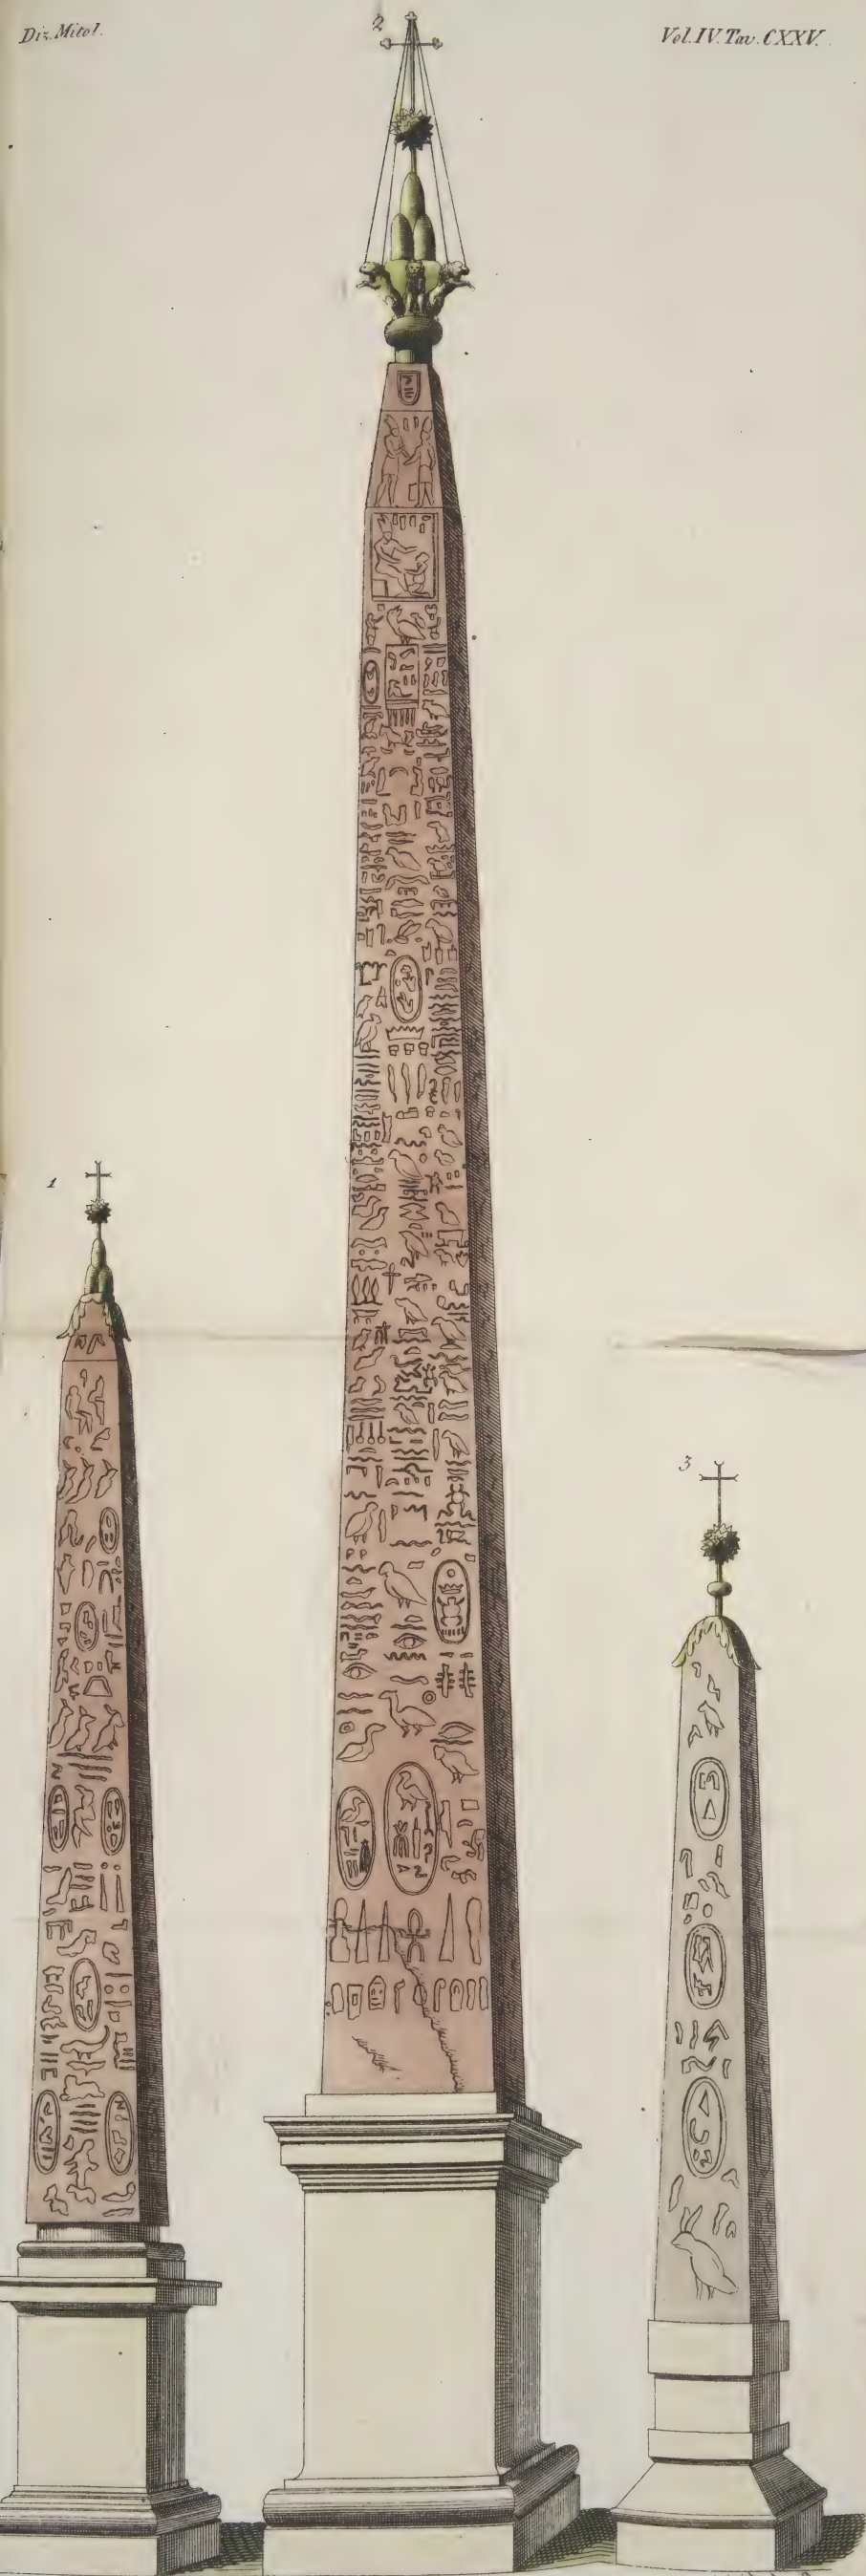 Diz. Mitol.
Vol. IV. Tav. CXXV.
2
1
3